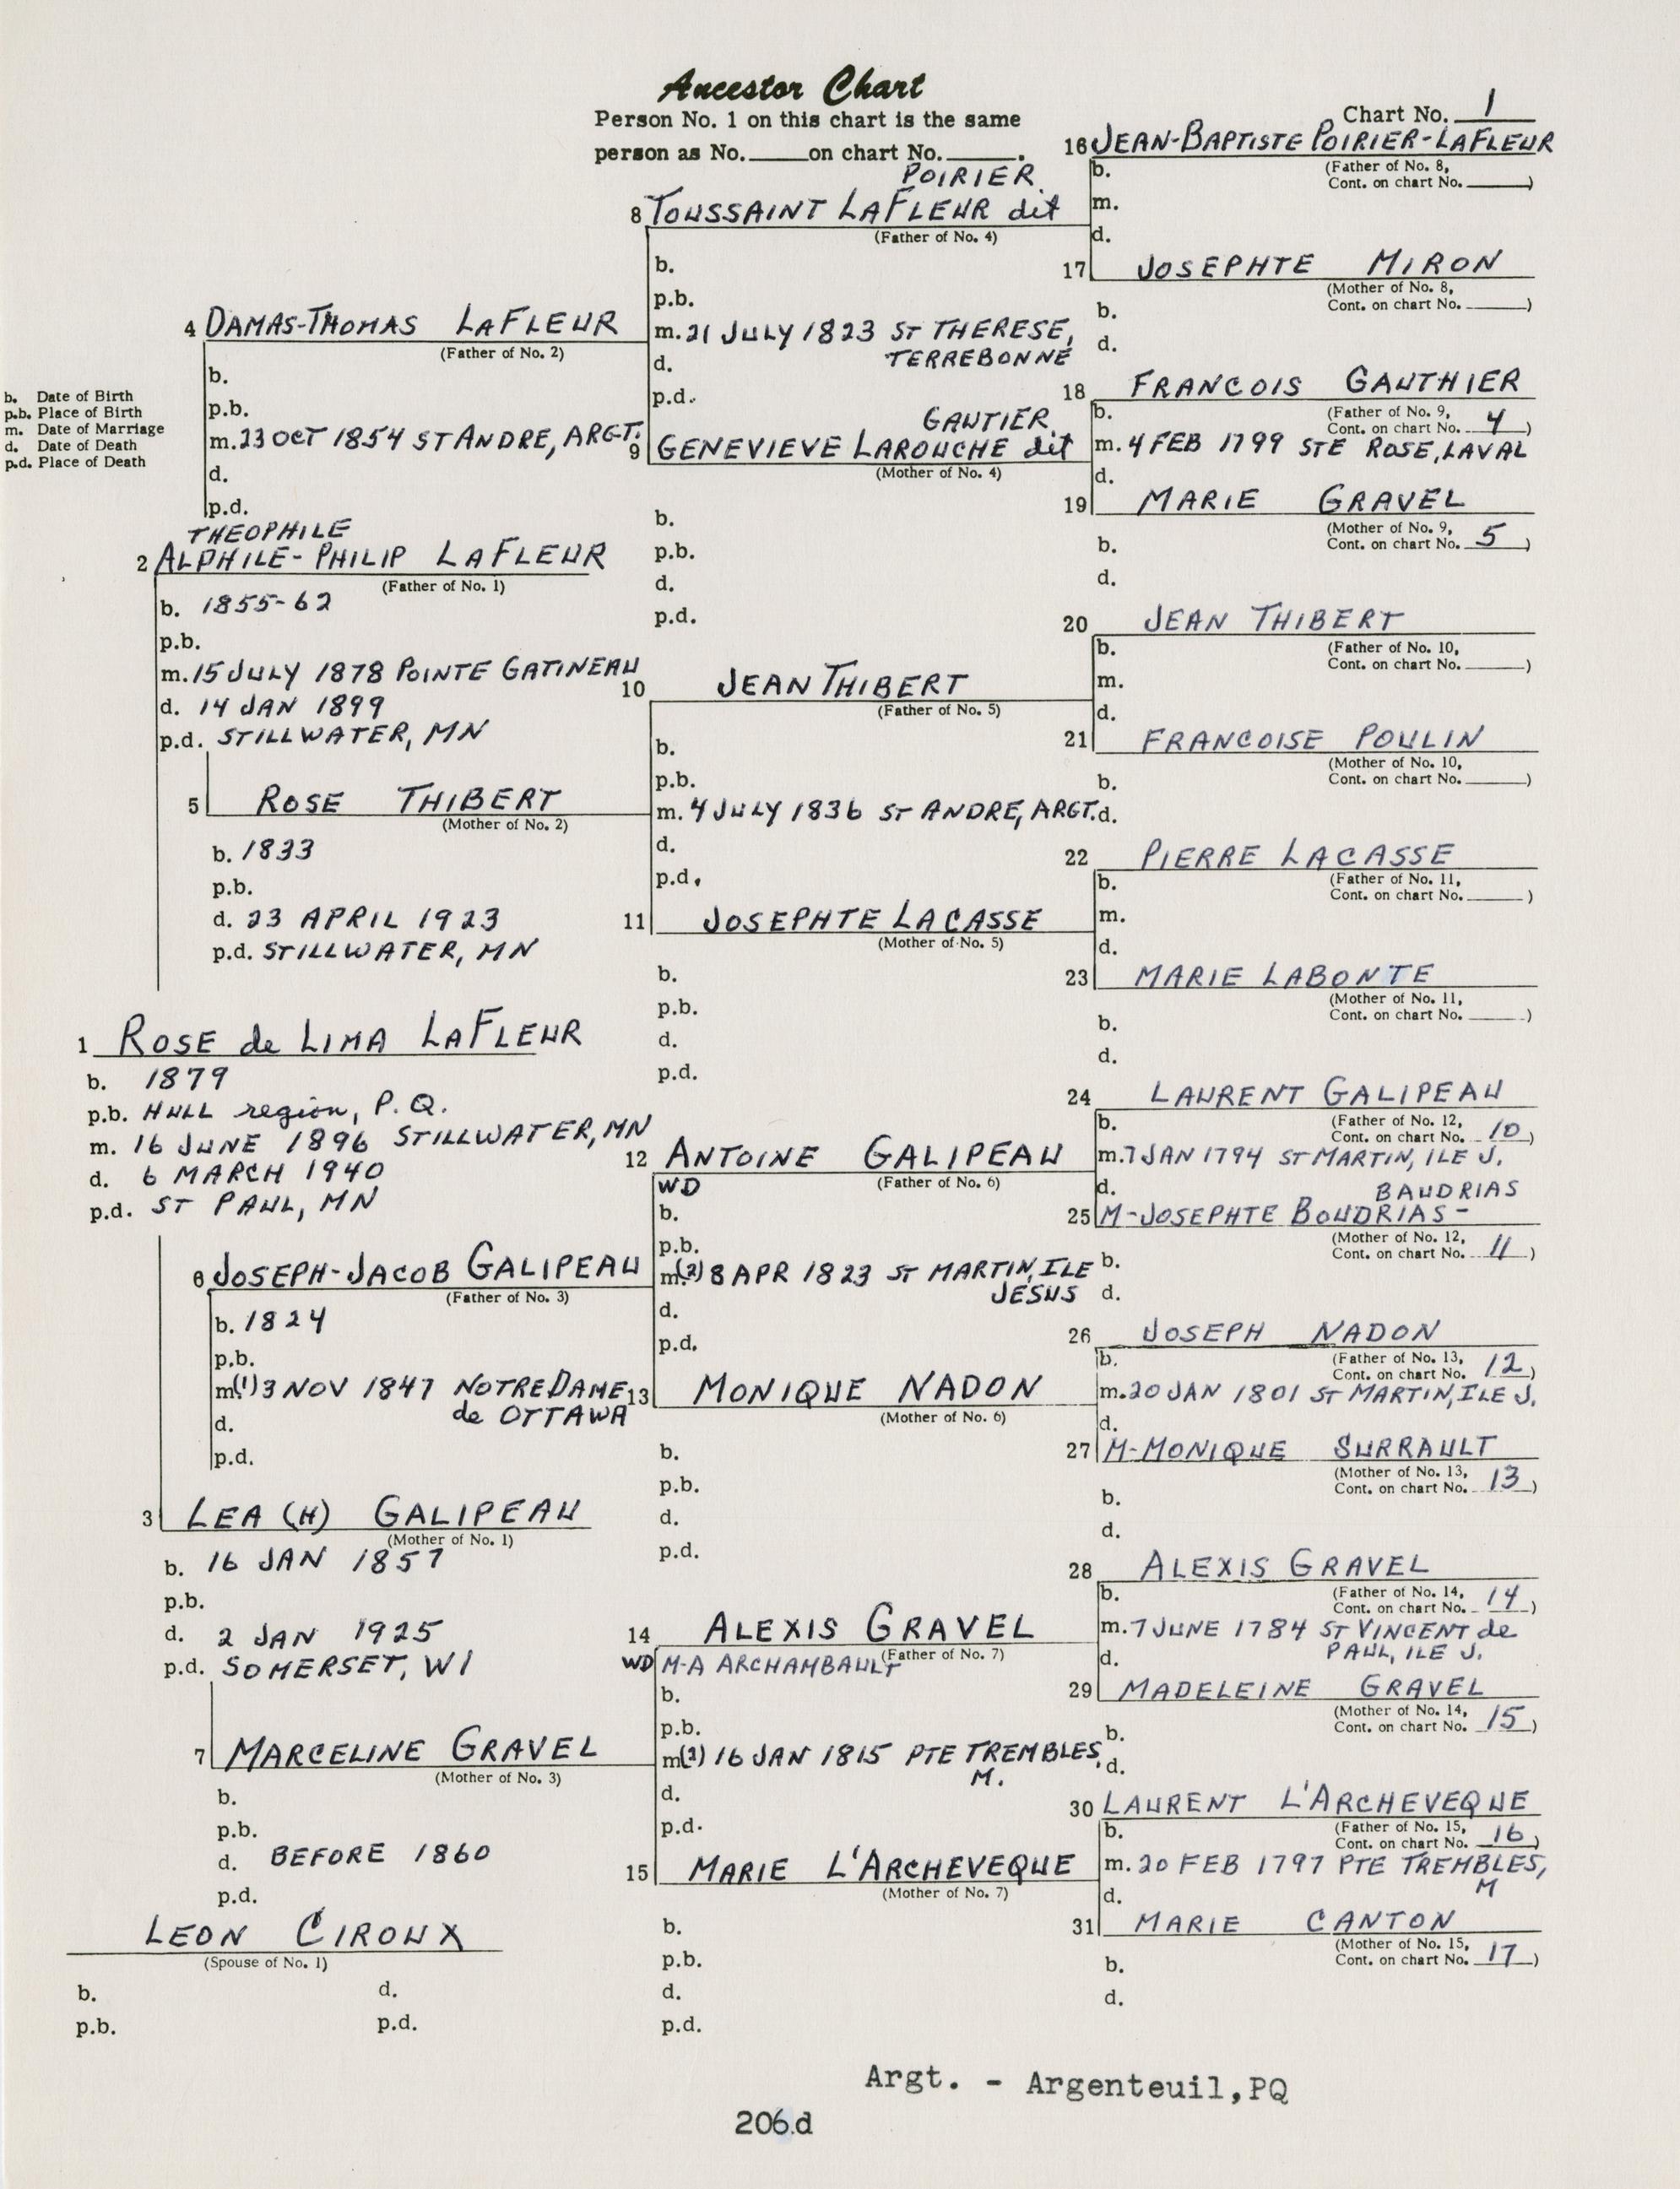 Ancestor Chart
Person No. 1 on this chart is the same
person as No.____on chart No.____.
Chart No. 1
b. Date of Birth
p.b. Place of Birth
m. Date of Marriage
d. Date of Death
p.d. Place of Death
1 ROSE de LIMA LAFLEUR
b. 1879
p.b. HULL region, P.Q.
m. 16 JUNE 1896 STILLWATER, MN
d. 6 MARCH 1940
p.d. ST PAUL, MN
THEOPHILE
2 ALPHILE-PHILIP LAFLEUR
(Father of No. 1)
b. 1855-62
p.b.
m. 15 JULY 1878 POINTE GATINEAU
d. 14 JAN 1899
p.d. STILLWATER, MN
3 LEA (H) GALIPEAU
(Mother of No. 1)
b. 16 JAN 1857
p.b.
d. 2 JAN 1925
p.d. SOMERSET, WI
LEON CIROUX
(Spouse of No. 1)
b.
d.
p.b.
p.d.
4 DAMAS-THOMAS LAFLEUR
(Father of No. 2)
b.
p.b.
m. 23 OCT 1854 ST ANDRE, ARGT.
d.
p.d.
5 ROSE THIBERT
(Mother of No. 2)
b. 1833
p.b.
d. 23 APRIL 1923
p.d. STILLWATER, MN
6 JOSEPH-JACOB GALIPEAU
(Father of No. 3)
b. 1824
p.b.
m.(1) 3 NOV 1847 NOTRE DAME
de OTTAWA
d.
p.d.
7 MARCELINE GRAVEL
(Mother of No. 3)
b.
p.b.
d. BEFORE 1860
p.d.
POIRIER
8 TOUSSAINT LAFLEUR dit
(Father of No. 4)
b.
p.b.
m. 21 JULY 1823 ST THERESE,
TERREBONNE
d.
p.d.
GAUTIER
9 GENEVIEVE LAROUCHE dit
(Mother of No. 4)
b.
p.b.
d.
p.d.
10 JEAN THIBERT
(Father of No. 5)
b.
p.b.
m. 4 JULY 1836 ST ANDRE, ARGT.
d.
p.d.
11 JOSEPHTE LACASSE
(Mother of No. 5)
b.
p.b.
d.
p.d.
12 ANTOINE GALIPEAU
(Father of No. 6)
WD
b.
p.b.
m.(2) 8 APR 1823 ST MARTIN, ILE
JESUS
d.
p.d.
13 MONIQUE NADON
(Mother of No. 6)
b.
p.b.
d.
p.d.
14 ALEXIS GRAVEL
(Father of No. 7)
WD M-A ARCHAMBAULT
b.
p.b.
m(2) 16 JAN 1815 PTE TREMBLES,
M.
d.
p.d.
15 MARIE L'ARCHEVEQUE
(Mother of No. 7)
b.
p.b.
d.
p.d.
16 JEAN-BAPTISTE POIRIER-LAFLEUR
(Father of No. 8,
Cont. on chart No.____)
b.
m.
d.
17 JOSEPHTE MIRON
(Mother of No. 8,
Cont. on chart No.____)
b.
d.
18 FRANCOIS GAUTHIER
(Father of No. 9,
Cont. on chart No. 4)
b.
m. 4 FEB 1799 STE ROSE, LAVAL
d.
19 MARIE GRAVEL
(Mother of No. 9,
Cont. on chart No. 5)
b.
d.
20 JEAN THIBERT
(Father of No. 10,
Cont. on chart No.____)
b.
m.
d.
21 FRANCOISE POULIN
(Mother of No. 10,
Cont. on chart No.____)
b.
d.
22 PIERRE LACASSE
(Father of No. 11,
Cont. on chart No.____)
b.
m.
d.
23 MARIE LABONTE
(Mother of No. 11,
Cont. on chart No.____)
b.
d.
24 LAURENT GALIPEAU
(Father of No. 12,
Cont. on chart No. 10)
b.
m. 7 JAN 1794 ST MARTIN, ILE J.
d.
BAUDRIAS
25 M-JOSEPHTE BOUDRIAS-
(Mother of No. 12,
Cont. on chart No. 11)
b.
d.
26 JOSEPH NADON
(Father of No. 13,
Cont. on chart No. 12)
b.
m. 20 JAN 1801 ST MARTIN, ILE J.
d.
27 M-MONIQUE SURRAULT
(Mother of No. 13,
Cont. on chart No. 13)
b.
d.
28 ALEXIS GRAVEL
(Father of No. 14,
Cont. on chart No. 14)
b.
m. 7 JUNE 1784 ST VINCENT de
PAUL, ILE J.
d.
29 MADELEINE GRAVEL
(Mother of No. 14,
Cont. on chart No. 15)
b.
d.
30 LAURENT L'ARCHEVEQUE
(Father of No. 15,
Cont. on chart No. 16)
b.
m. 20 FEB 1797 PTE TREMBLES,
M
d.
31 MARIE CANTON
(Mother of No. 15,
Cont. on chart No. 17)
b.
d.
Argt. - Argenteuil,PQ
206.d